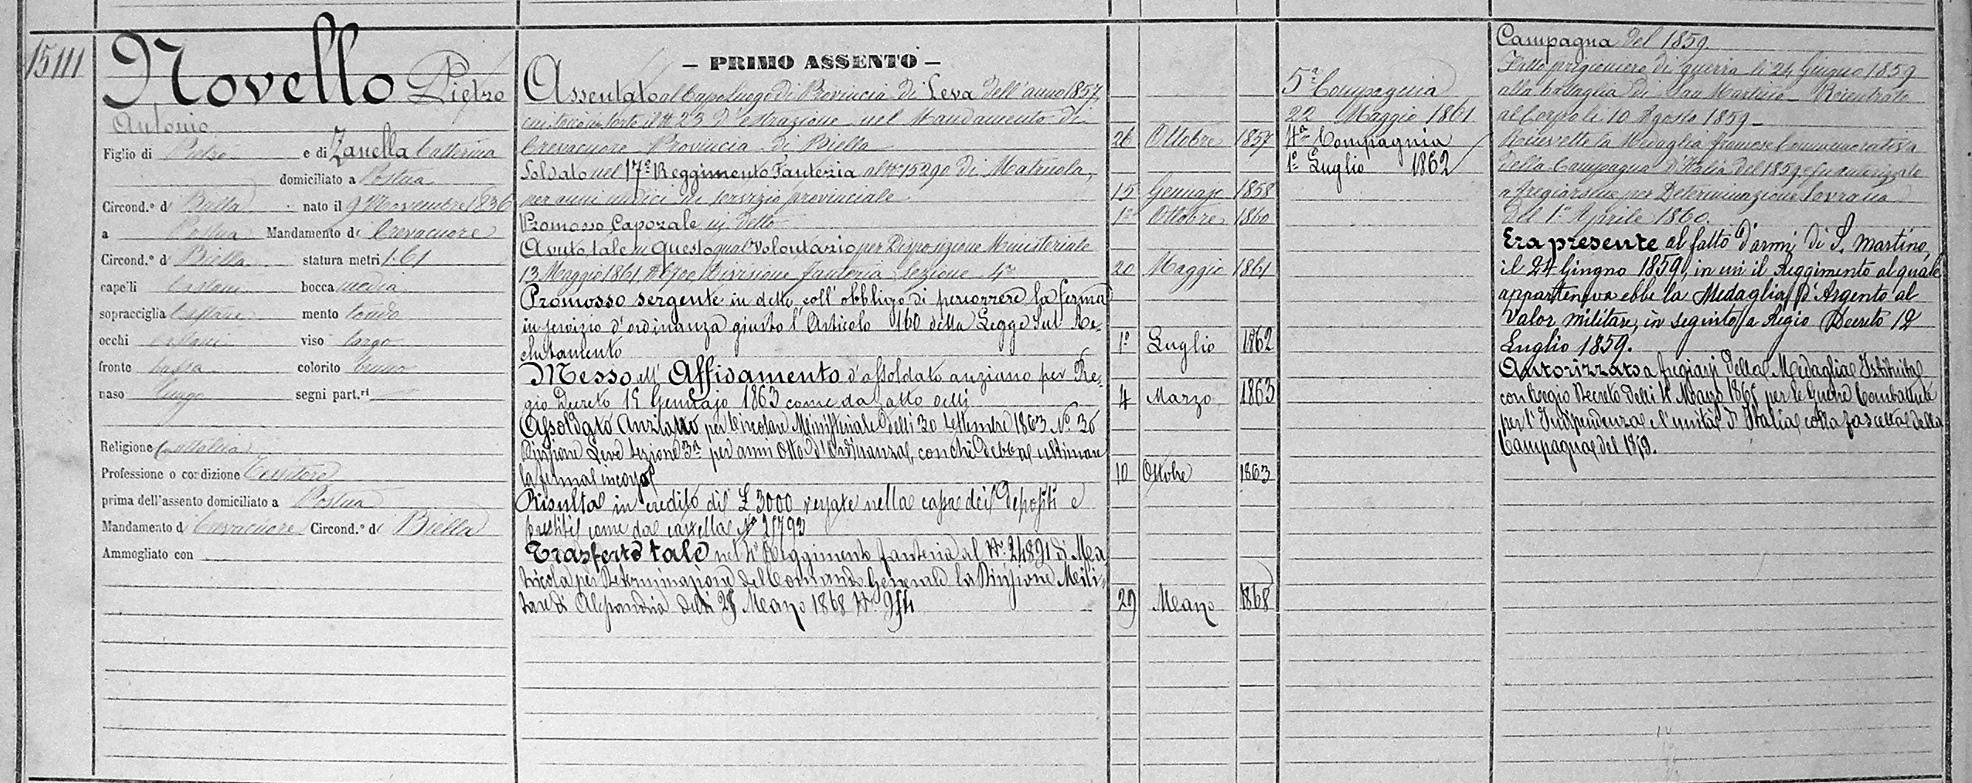 15111
Novello Pietro
Antonio
Figlio di Pietro e di Zanella Catterina
domiciliato a Postua
Circond.º di Biella nato il 9 Novembre 1836
a Postua Mandamento di Crevacuore
Circond.º di Biella statura metri 1.61
capelli castani bocca media
sopracciglia castane mento tondo
occhi castani viso largo
fronte bassa colorito bruno
naso lungo segni part.ri
Religione Cattolica
Professione o condizione
prima dell'assento domiciliato a Postua
Mandamento di Crevacuore Circond.º di Biella
Ammogliato con
— PRIMO ASSENTO —
Assentato al Capoluogo di Provincia di Leva dell'anno 1857,
cui toccò in sorte il Nº 23 d'estrazione nel Mandamento di
Crevacuore Provincia di Biella 26 Ottobre 1857
Soldato nel 17º Reggimento Fanteria al Nº 15290 di Matricola,
per anni undici di servizio provinciale 15 Gennajo 1858
Promosso Caporale in detto 1º Ottobre 1860
Avuto tale in questo qual Volontario per Disposizione Ministeriale
13 Maggio 1861 Divisione fanteria Sezione 4ª 20 Maggio 1861
Promosso sergente in detto coll'obbligo di percorrere la ferma
in servizio d'ordinanza giusto l'Articolo 160 della Legge sul Re-
clutamento 1º Luglio 1862
Messo all'Affidamento d'assoldato anziano per Re-
gio Decreto 15 Gennajo 1863 come da atto delli 4 Marzo 1863
Assoldato Anziano per Circolare Ministeriale delli 20 Settembre 1863 Nº 36
Divisione Leve Sezione 3ª per anni otto d'ordinanza, con che debba ultimare
la ferma in corso 10 Ottobre 1863
Risulta in credito di £ 3000 versate nella cassa dei Depositi e
prestiti come da cartella Nº 21793
Trasferto tale nel 4º Reggimento fanteria al Nº 24891 di Ma-
tricola per Determinazione del Comando Generale la Divisione Mili-
tare di Alessandria delli 28 Marzo 1868 Nº 954 29 Marzo 1868
5ª Compagnia
22 Maggio 1861
4ª Compagnia
1º Luglio 1862
Campagna del 1859.
Fatto prigioniero di guerra li 24 Giugno 1859
alla battaglia di San Martino - Rientrato
al Corpo li 10 Agosto 1859 -
Ricevette la Medaglia francese Commemorativa
della Campagna d'Italia del 1859 e fu autorizzato
a fregiarsene per Determinazione Sovrana
del 1º Aprile 1860.
Era presente al fatto d'armi di S. Martino,
il 24 Giugno 1859, in cui il Reggimento al quale
apparteneva ebbe la Medaglia d'Argento al
Valor militare, in seguito a Regio Decreto 12
Luglio 1859.
Autorizzato a fregiarsi della Medaglia Istituita
con Regio Decreto delli 4 Marzo 1865 per le Guerre Combattute
per l'Indipendenza e l'unità d'Italia colla fascetta della
Campagna del 1859.